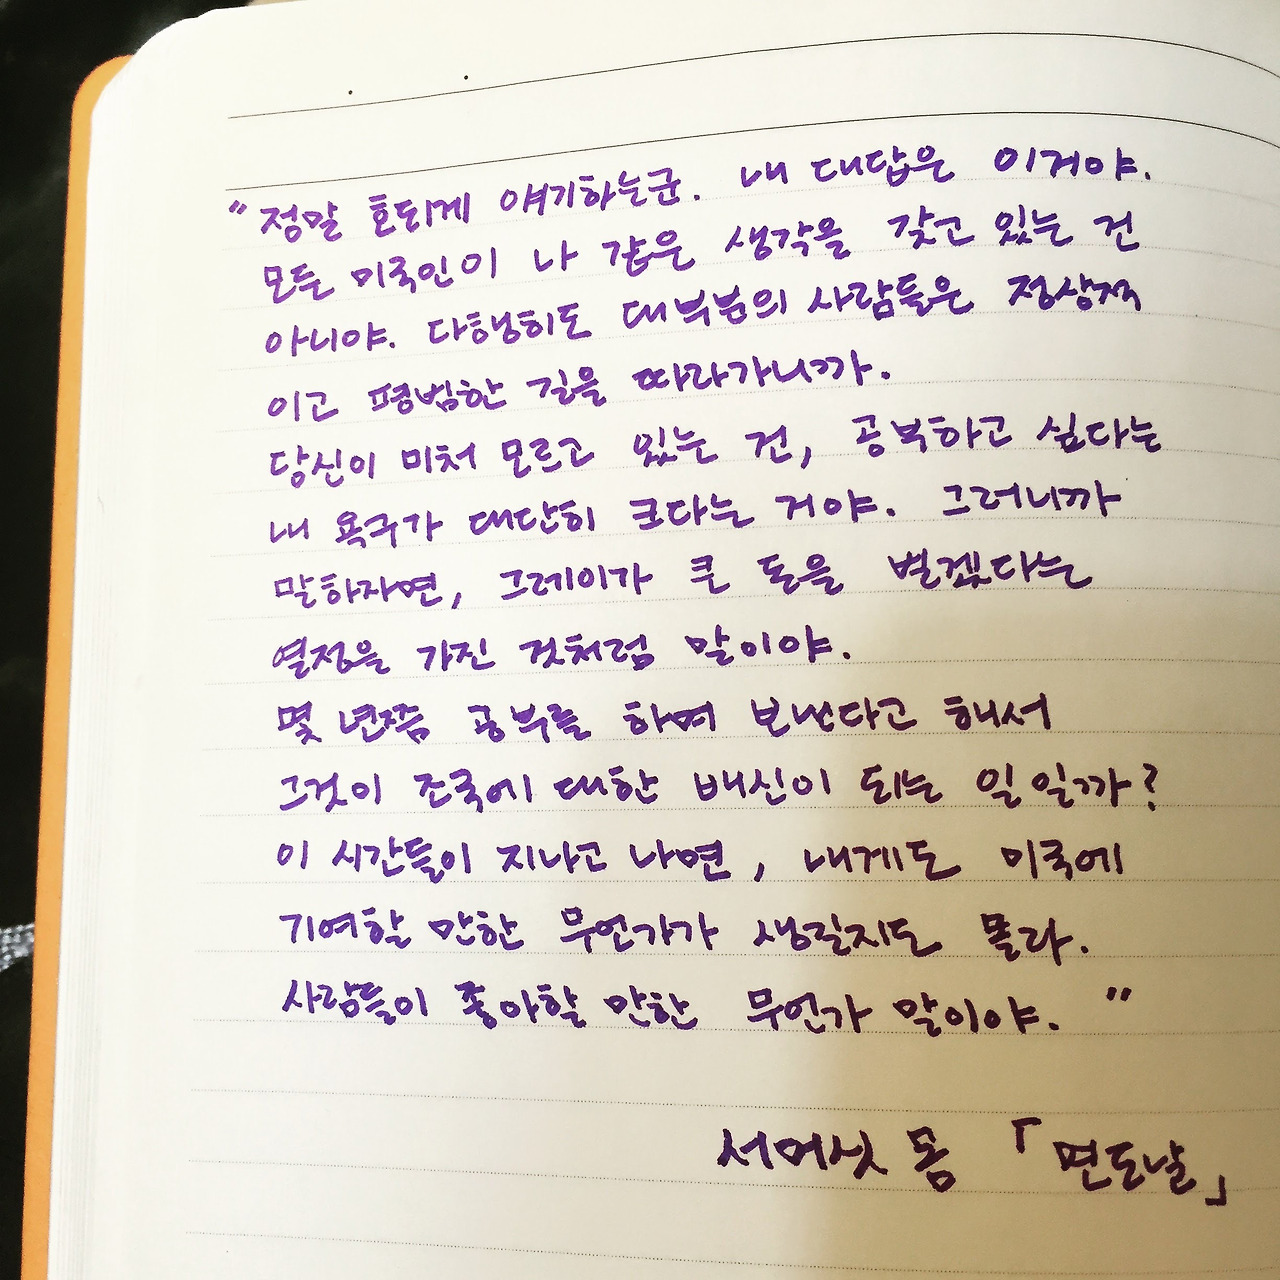 "정말 호되게 얘기하는군. 내 대답은 이거야.
모든 미국인이 나 같은 생각을 갖고 있는 건
아니야. 다행히도 대부분의 사람들은 정상적
이고 평범한 길을 따라가니까.
당신이 미처 모르고 있는 건, 공부하고 싶다는
내 욕구가 대단히 크다는 거야. 그러니까
말하자면, 그레이가 큰 돈을 벌겠다는
열정을 가진 것처럼 말이야.
몇 년쯤 공부를 하며 보낸다고 해서
그것이 조국에 대한 배신이 되는 일일까?
이 시간들이 지나고 나면, 내게도 미국에
기여할 만한 무언가가 생길지도 몰라.
사람들이 좋아할 만한 무언가 말이야."
서머싯 몸 「면도날」